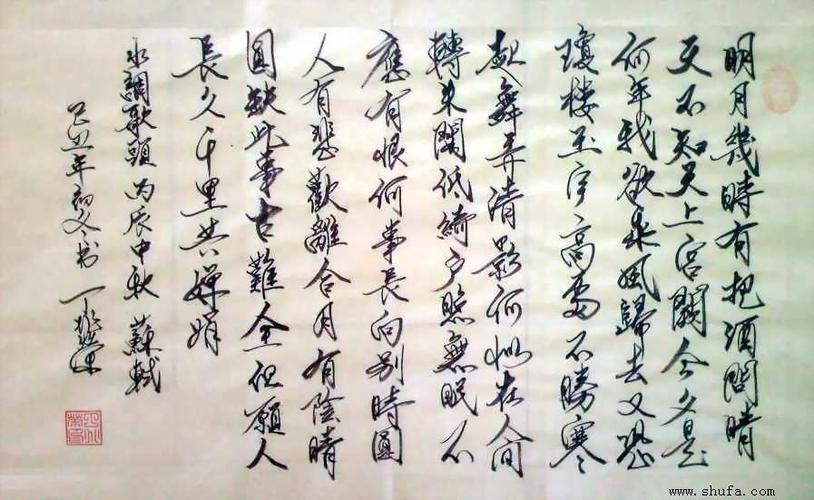 明月幾時有把酒問晴
天不知天上宮闕今夕是
何年我欲乘風歸去又恐
瓊樓玉宇高處不勝寒
起舞弄清影何似在人間
轉朱閣低綺戶照無眠不
應有恨何事長向別時圓
人有悲歡離合月有陰晴
圓缺此事古難全但願人
長久千里共嬋娟
水調歌頭 丙辰中秋 蘇軾
己丑年初书
www.shufa.com